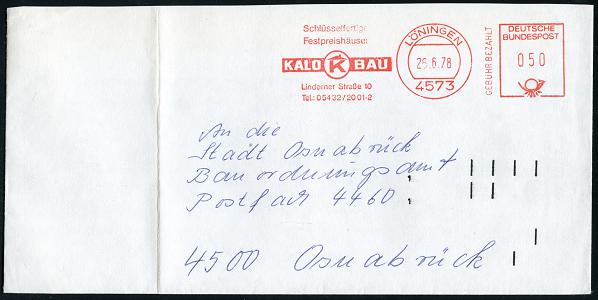 Schlüsselfertige
Festpreishäuser
KALO K BAU
Linderner Straße 10
Tel.: 05432/2001-2
LÖNINGEN
25.6.78
4573
GEBÜHR BEZAHLT
DEUTSCHE
BUNDESPOST
050
An die
Stadt Osnabrück
Bauordnungsamt
Postfach 4460
4500 Osnabrück